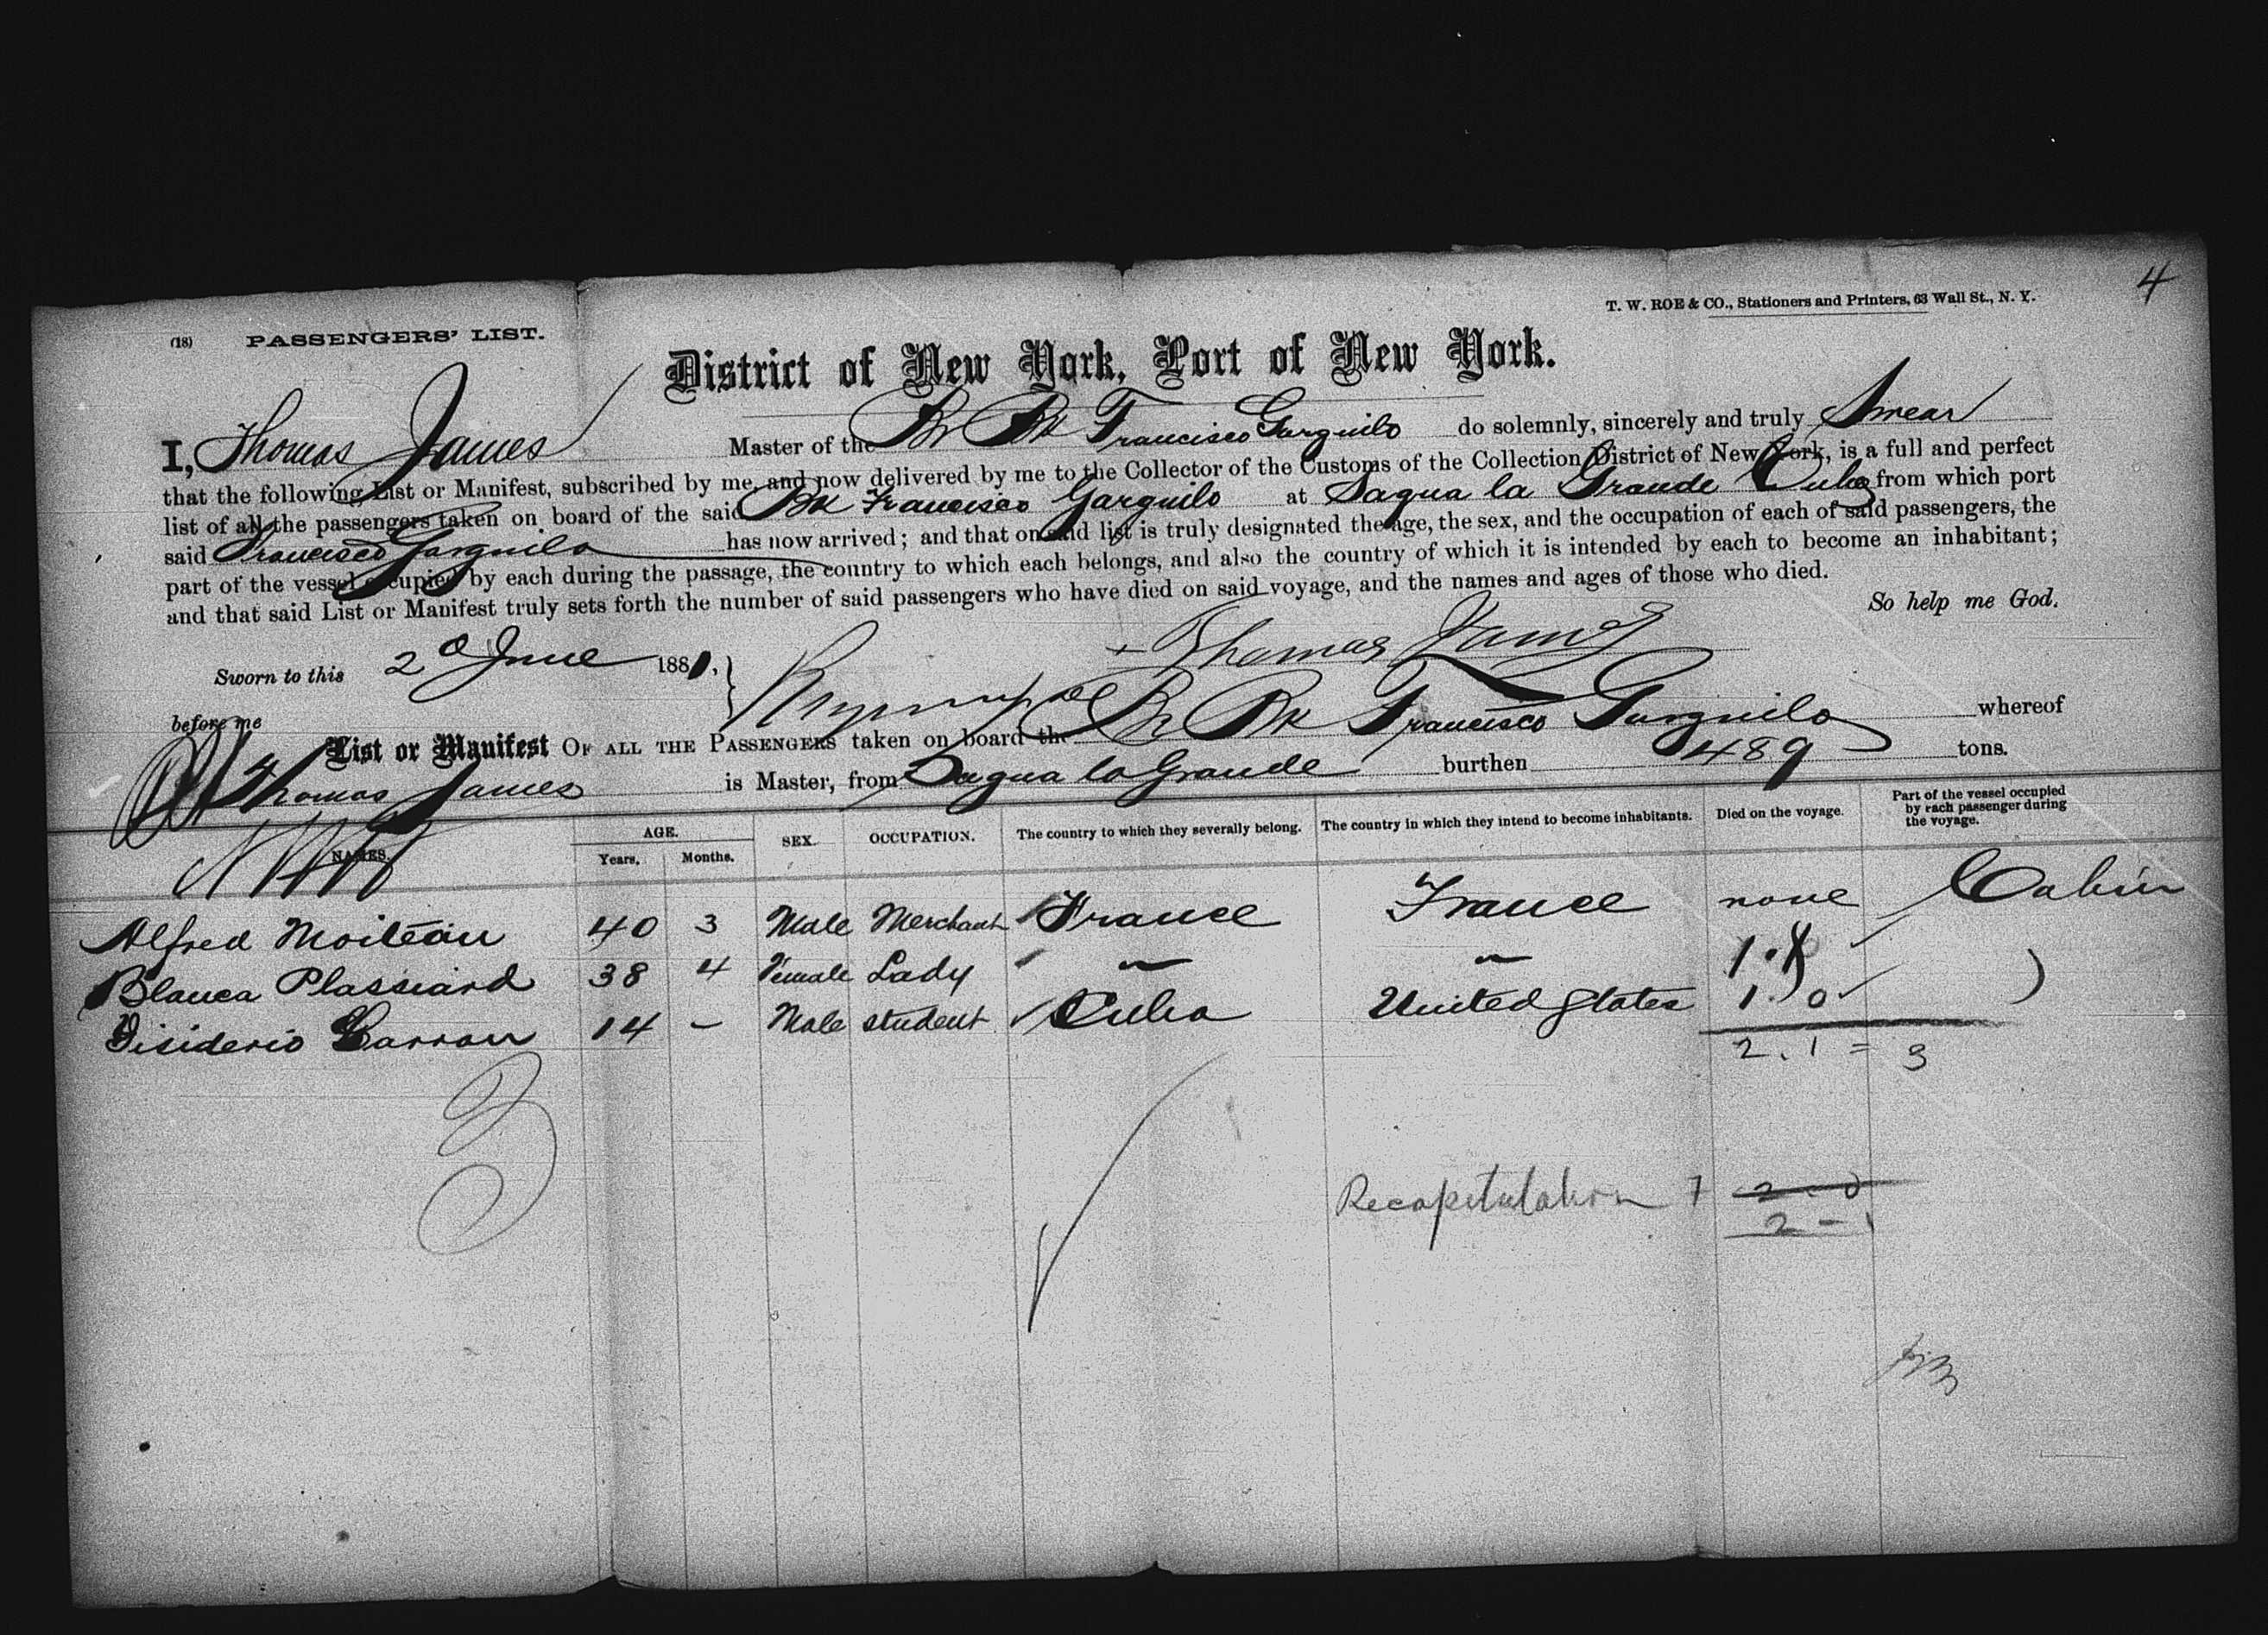 4
T. W. ROE & CO., Stationers and Printers, 63 Wall St., N. Y.
(18) PASSENGERS' LIST.
District of New York, Port of New York.
I, Thomas James Master of the Br Bk Francisco Garguilo do solemnly, sincerely and truly Swear
that the following List or Manifest, subscribed by me, and now delivered by me to the Collector of the Customs of the Collection District of New York, is a full and perfect
list of all the passengers taken on board of the said Bk Francisco Garguilo at Sagua la Grande Cuba from which port
said Francisco Garguilo has now arrived; and that on said list is truly designated the age, the sex, and the occupation of each of said passengers, the
part of the vessel occupied by each during the passage, the country to which each belongs, and also the country of which it is intended by each to become an inhabitant;
and that said List or Manifest truly sets forth the number of said passengers who have died on said voyage, and the names and ages of those who died.
So help me God.
Thomas James
Sworn to this 2d June 1881,
before me
List or Manifest OF ALL THE PASSENGERS taken on board the Br Bk Francisco Garguilo whereof
Thomas James is Master, from Sagua la Grande burthen 489 tons.
NAMES. AGE. Years. Months. SEX. OCCUPATION. The country to which they severally belong. The country in which they intend to become inhabitants. Died on the voyage. Part of the vessel occupied by each passenger during the voyage.
Alfred Moiteau 40 3 Male Merchant France France none Cabin
Blanca Plassiard 38 4 Female Lady — —
Disiderio Carron 14 - Male student Cuba United States 1. 0
2. 1 = 3
Recapitulation 2 - 0
2 - 1